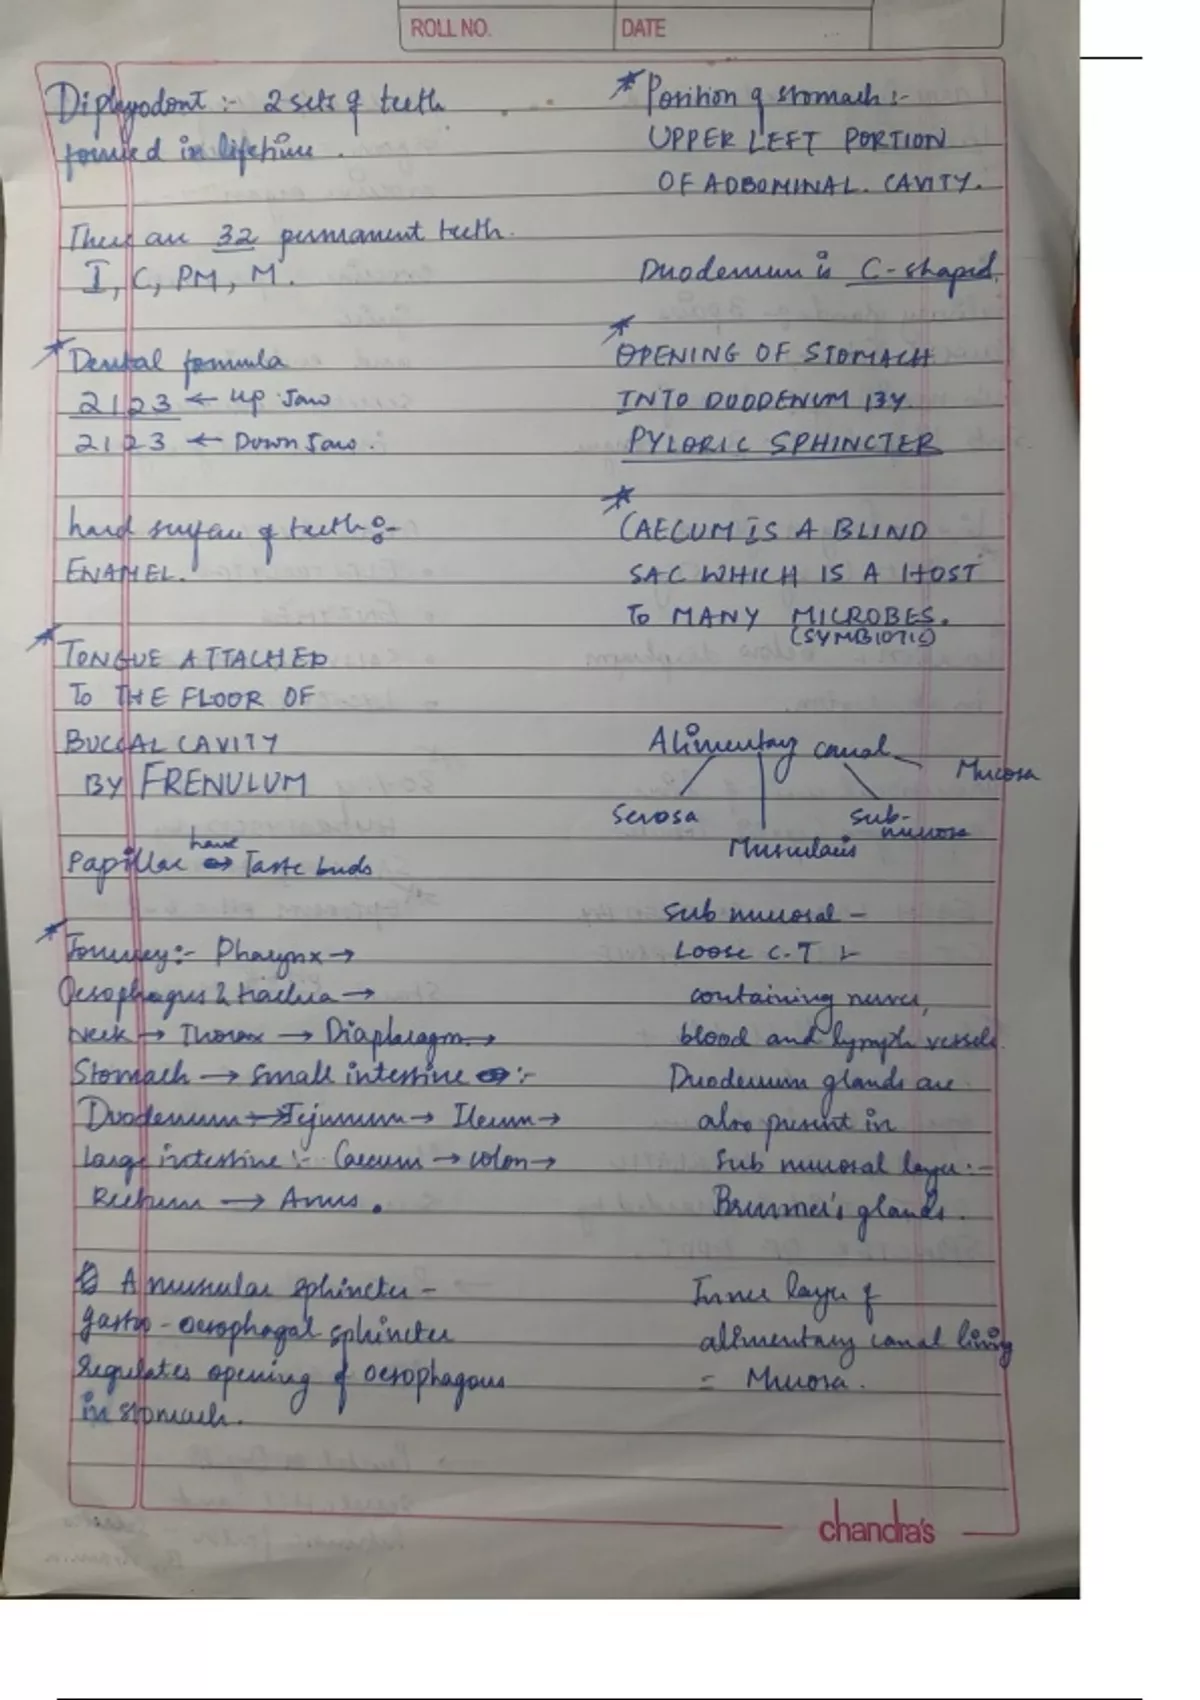 ROLL NO.
DATE
Diphyodont :- 2 sets of teeth
formed in lifetime .
There are 32 permanent teeth.
I, C, PM, M.
* Dental formula
2123 ← up Jaw
2123 ← Down Jaw .
hard surface of teeth :-
ENAMEL.
* TONGUE ATTACHED
TO THE FLOOR OF
BUCCAL CAVITY
BY FRENULUM
have
Papillae → Taste buds
* Journey:- Pharynx →
Oesophagus & trachea →
Neck → Thorax → Diaphragm →
Stomach → Small intestine :-
Duodenum → Jejunum → Ileum →
Large intestine :- Caecum → colon →
Rectum → Anus .
A muscular sphincter -
gastro - oesophagal sphincter
regulates opening of oesophagous
in stomach.
* Position of stomach :-
UPPER LEFT PORTION
OF ADBOMINAL. CAVITY.
Duodenum is C-shaped.
* OPENING OF STOMACH
INTO DUODENUM BY
PYLORIC SPHINCTER
* CAECUM IS A BLIND
SAC WHICH IS A HOST
TO MANY MICROBES.
(SYMBIOTIC)
Alimentary canal
Mucosa
Serosa
Sub-
mucosa
Muscularis
Sub mucosal -
Loose C.T
containing nerves,
blood and lymph vessels.
Duodenum glands are
also present in
Sub mucosal layer :-
Brunner's glands.
Inner layer of
alimentary canal living
= Mucosa.
chandra's